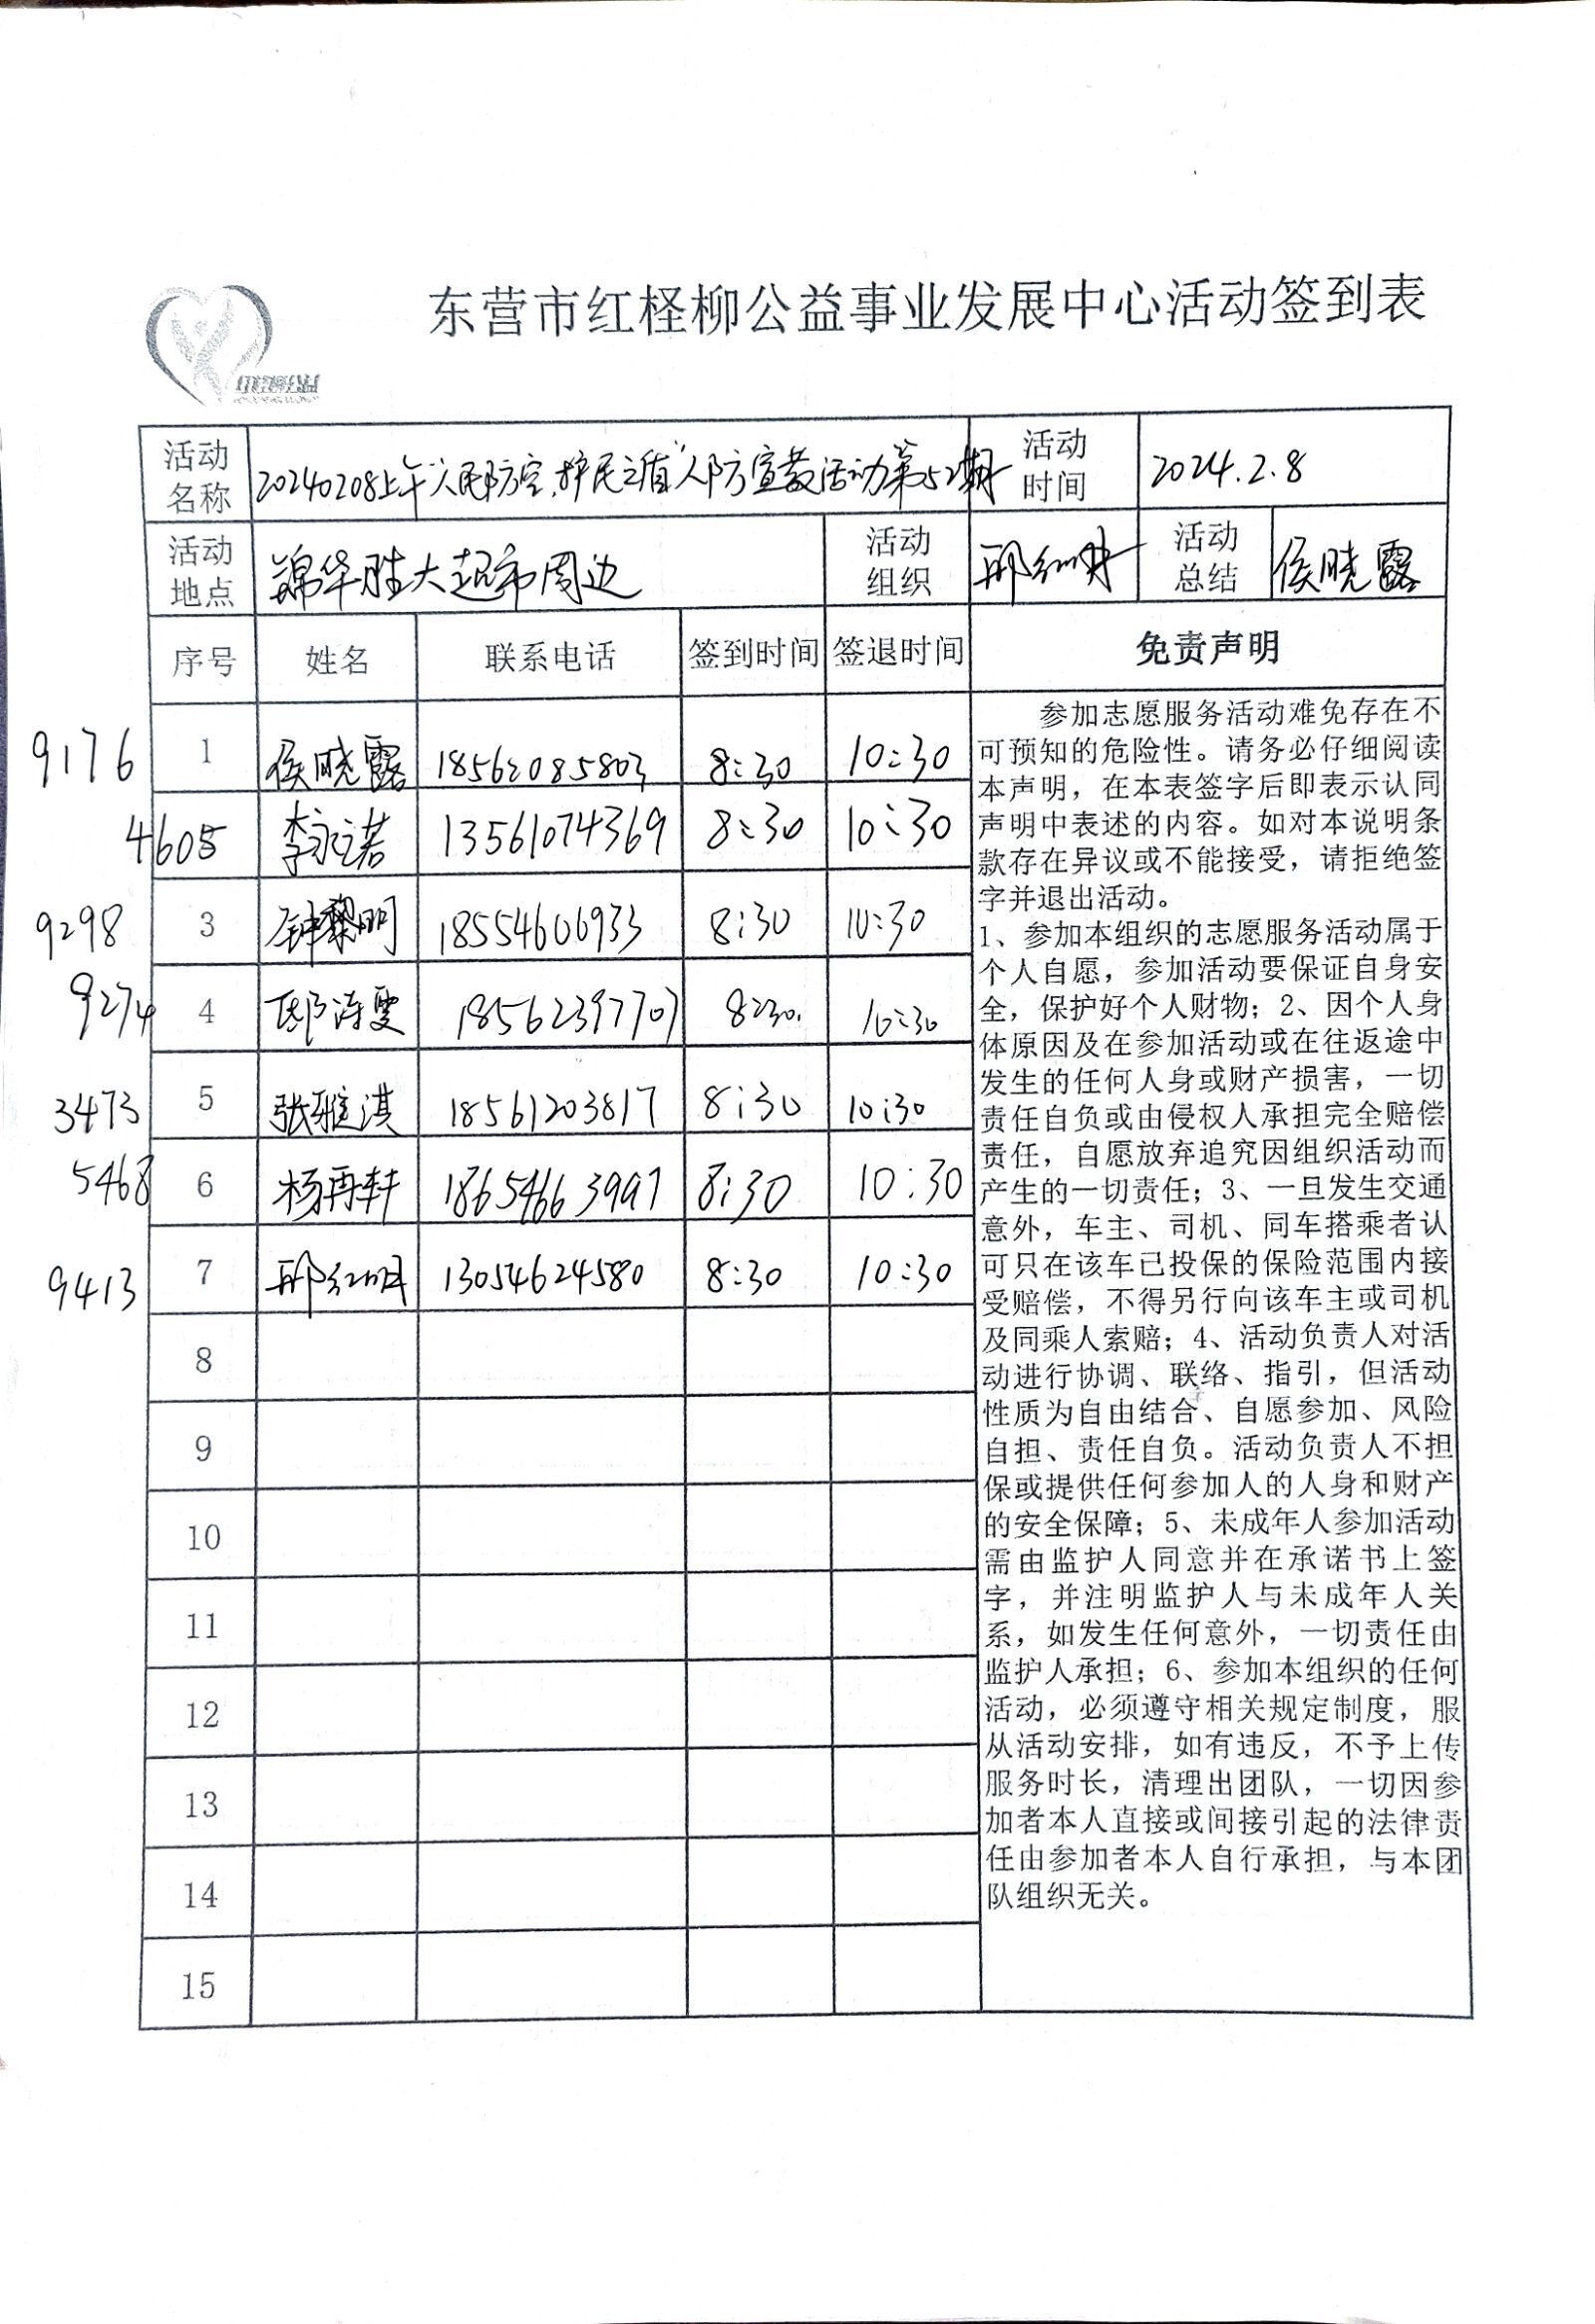 东营市红柽柳公益事业发展中心活动签到表
活动名称 20240208上午"人民防空,护民之盾"人防宣教活动第52期 活动时间 2024.2.8
活动地点 锦华胜大超市周边 活动组织 邢红明 活动总结 侯晓露
序号 姓名 联系电话 签到时间 签退时间 免责声明
9176 1 侯晓露 18562085803 8:30 10:30
4605 李永诺 13561074369 8:30 10:30
9298 3 钟黎明 18554606933 8:30 10:30
9274 4 18562397707 8:30. 10:30
3473 5 张雅淇 18561203817 8:30 10:30
5468 6 杨再轩 18654663997 8:30 10:30
9413 7 邢红明 13054624580 8:30 10:30
8
9
10
11
12
13
14
15
参加志愿服务活动难免存在不
可预知的危险性。请务必仔细阅读
本声明，在本表签字后即表示认同
声明中表述的内容。如对本说明条
款存在异议或不能接受，请拒绝签
字并退出活动。
1、参加本组织的志愿服务活动属于
个人自愿，参加活动要保证自身安
全，保护好个人财物；2、因个人身
体原因及在参加活动或在往返途中
发生的任何人身或财产损害，一切
责任自负或由侵权人承担完全赔偿
责任，自愿放弃追究因组织活动而
产生的一切责任；3、一旦发生交通
意外，车主、司机、同车搭乘者认
可只在该车已投保的保险范围内接
受赔偿，不得另行向该车主或司机
及同乘人索赔；4、活动负责人对活
动进行协调、联络、指引，但活动
性质为自由结合、自愿参加、风险
自担、责任自负。活动负责人不担
保或提供任何参加人的人身和财产
的安全保障；5、未成年人参加活动
需由监护人同意并在承诺书上签
字，并注明监护人与未成年人关
系，如发生任何意外，一切责任由
监护人承担；6、参加本组织的任何
活动，必须遵守相关规定制度，服
从活动安排，如有违反，不予上传
服务时长，清理出团队，一切因参
加者本人直接或间接引起的法律责
任由参加者本人自行承担，与本团
队组织无关。